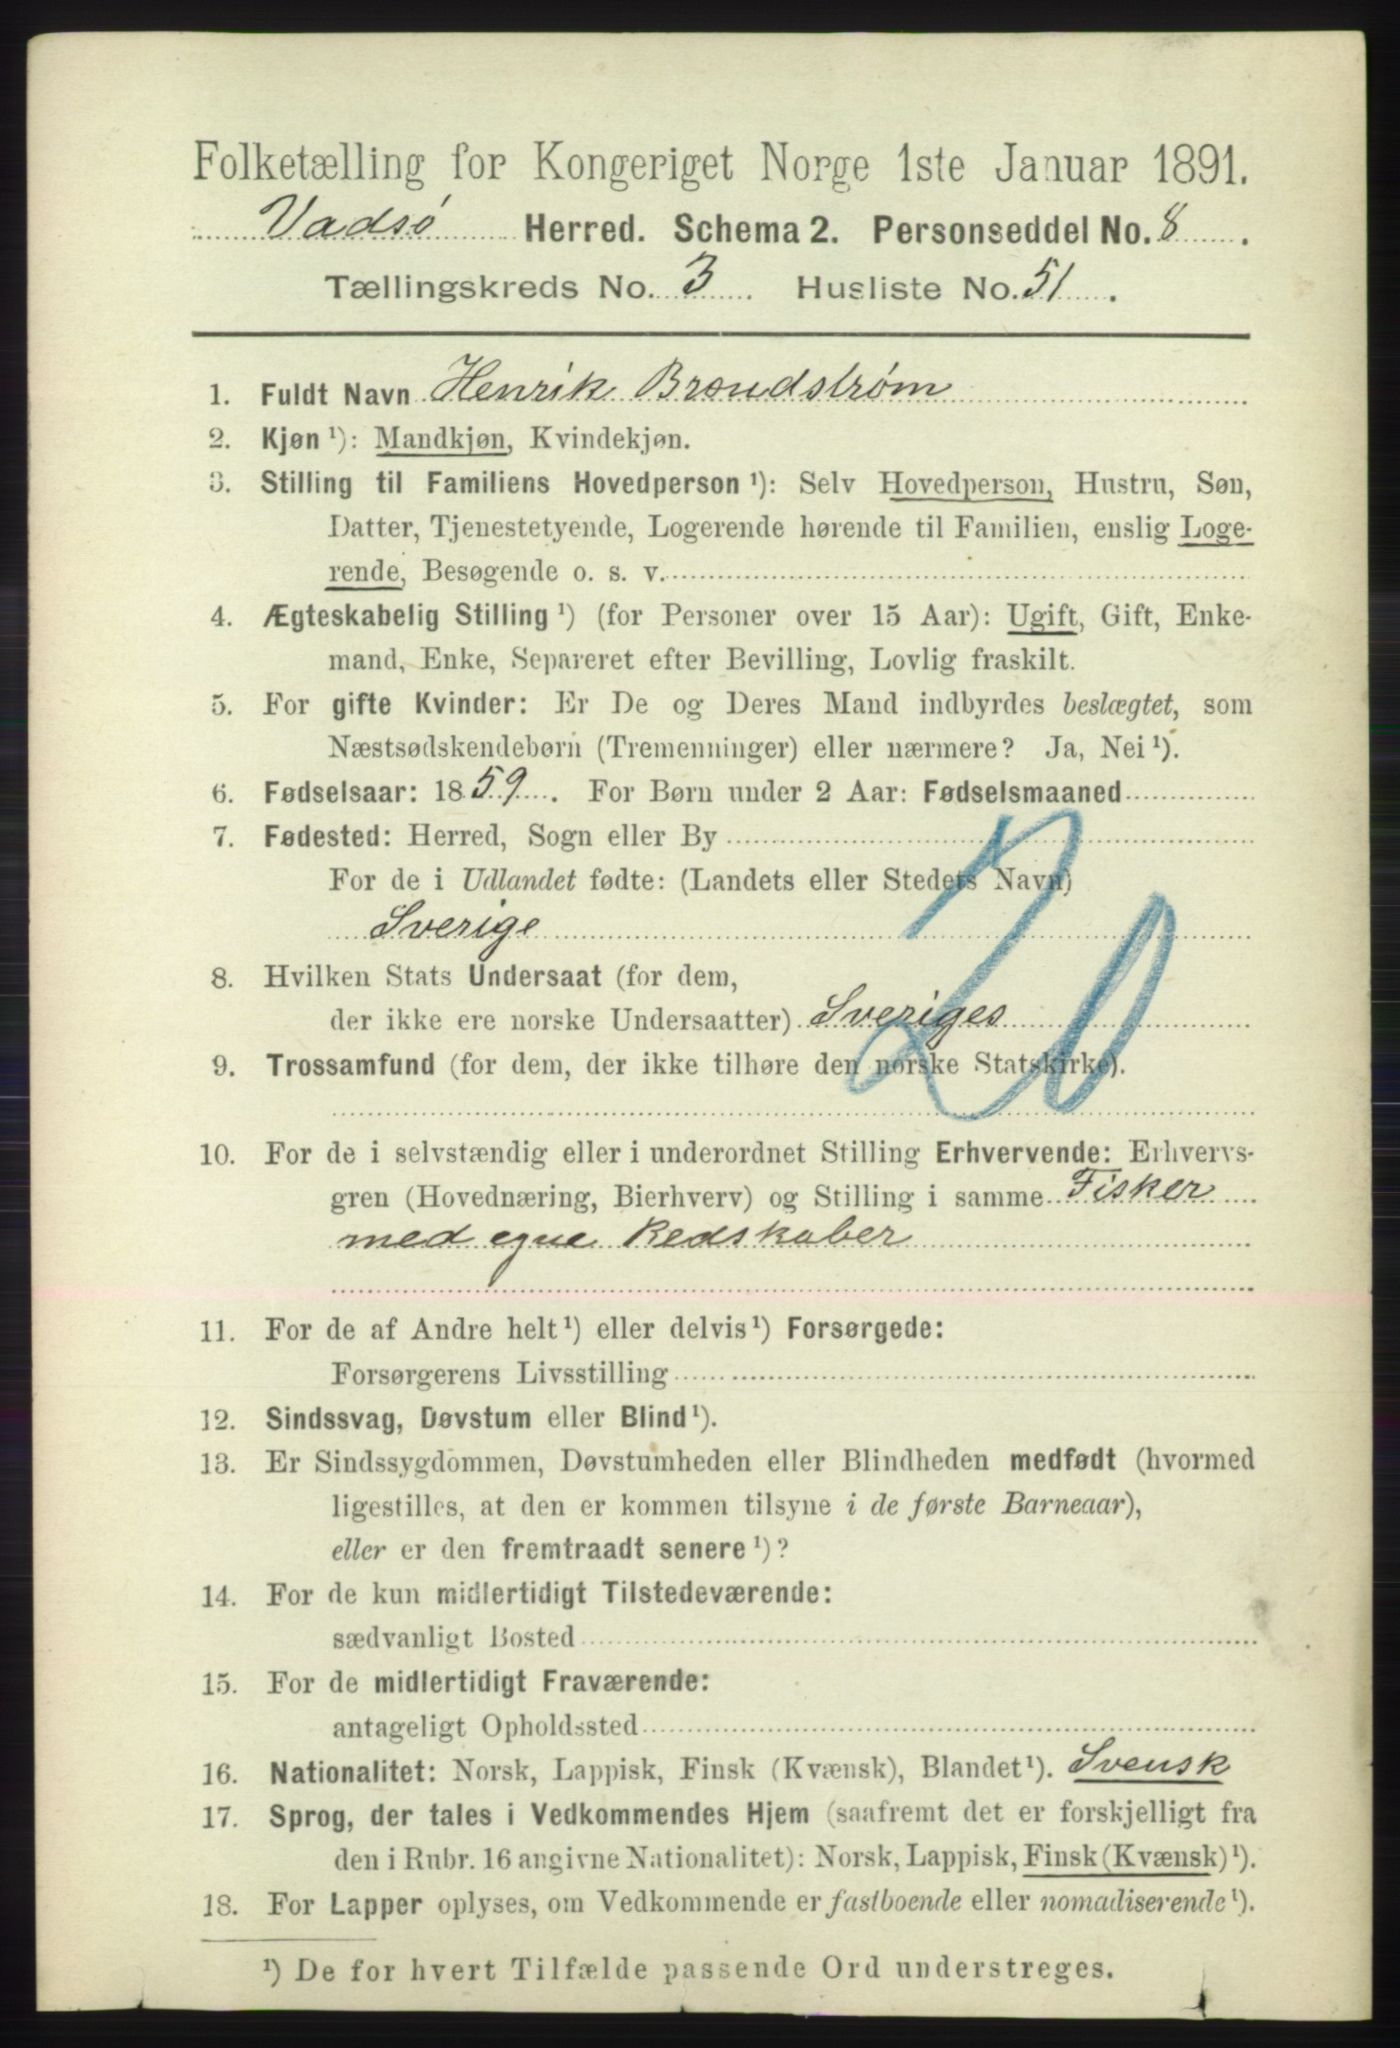 Folketælling for Kongeriget Norge 1ste Januar 1891.
Vadsø Herred. Schema 2. Personseddel No. 8.
Tællingskreds No. 3. Husliste No. 51.
1. Fuldt Navn Henrik Brændstrøm
2. Kjøn ¹): Mandkjøn, Kvindekjøn.
3. Stilling til Familiens Hovedperson ¹): Selv Hovedperson, Hustru, Søn,
Datter, Tjenestetyende, Logerende hørende til Familien, enslig Loge-
rende, Besøgende o. s. v.
4. Ægteskabelig Stilling ¹) (for Personer over 15 Aar): Ugift, Gift, Enke-
mand, Enke, Separeret efter Bevilling, Lovlig fraskilt.
5. For gifte Kvinder: Er De og Deres Mand indbyrdes beslægtet, som
Næstsødskendebørn (Tremenninger) eller nærmere? Ja, Nei ¹).
6. Fødselsaar: 1859. For Børn under 2 Aar: Fødselsmaaned
7. Fødested: Herred, Sogn eller By
For de i Udlandet fødte: (Landets eller Stedets Navn)
Sverige
8. Hvilken Stats Undersaat (for dem,
der ikke ere norske Undersaatter) Sveriges
9. Trossamfund (for dem, der ikke tilhøre den norske Statskirke).
10. For de i selvstændig eller i underordnet Stilling Erhvervende: Erhvervs-
gren (Hovednæring, Bierhverv) og Stilling i samme Fisker
med egne Redskaber
11. For de af Andre helt ¹) eller delvis ¹) Forsørgede:
Forsørgerens Livsstilling
12. Sindssvag, Døvstum eller Blind ¹).
13. Er Sindssygdommen, Døvstumheden eller Blindheden medfødt (hvormed
ligestilles, at den er kommen tilsyne i de første Barneaar),
eller er den fremtraadt senere ¹)?
14. For de kun midlertidigt Tilstedeværende:
sædvanligt Bosted
15. For de midlertidigt Fraværende:
antageligt Opholdssted
16. Nationalitet: Norsk, Lappisk, Finsk (Kvænsk), Blandet ¹). Svensk
17. Sprog, der tales i Vedkommendes Hjem (saafremt det er forskjelligt fra
den i Rubr. 16 angivne Nationalitet): Norsk, Lappisk, Finsk (Kvænsk) ¹).
18. For Lapper oplyses, om Vedkommende er fastboende eller nomadiserende ¹).
¹) De for hvert Tilfælde passende Ord understreges.